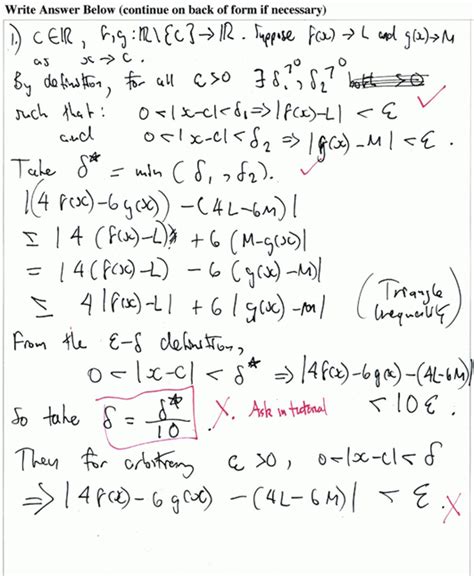 Write Answer Below (continue on back of form if necessary)
1.) C∈ℝ, f,g:ℝ\{c}→ℝ. Suppose f(x)→L and g(x)→M
as x→c.
By definition, for all ε>0 ∃ δ₁>0, δ₂>0
such that: 0<|x-c|<δ₁⇒|f(x)-L| < ε ✓
and 0<|x-c|<δ₂ ⇒|g(x)-M| < ε.
Take δ* = min (δ₁, δ₂). ✓
|(4f(x)-6g(x)) -(4L-6M)|
≤ |4(f(x)-L) + 6(M-g(x))|
= |4(f(x)-L) - 6(g(x)-M)|
≤ 4|f(x)-L| + 6|g(x)-M| (Triangle
inequality)
From the ε-δ definition,
0<|x-c|<δ* ⇒|4f(x)-6g(x)-(4L-6M)|
<10ε.
So take δ = δ*/10. X. Ask in tutorial
Then for arbitrary ε>0, 0<|x-c|<δ
⇒|4f(x)-6g(x) -(4L-6M)| < ε. X